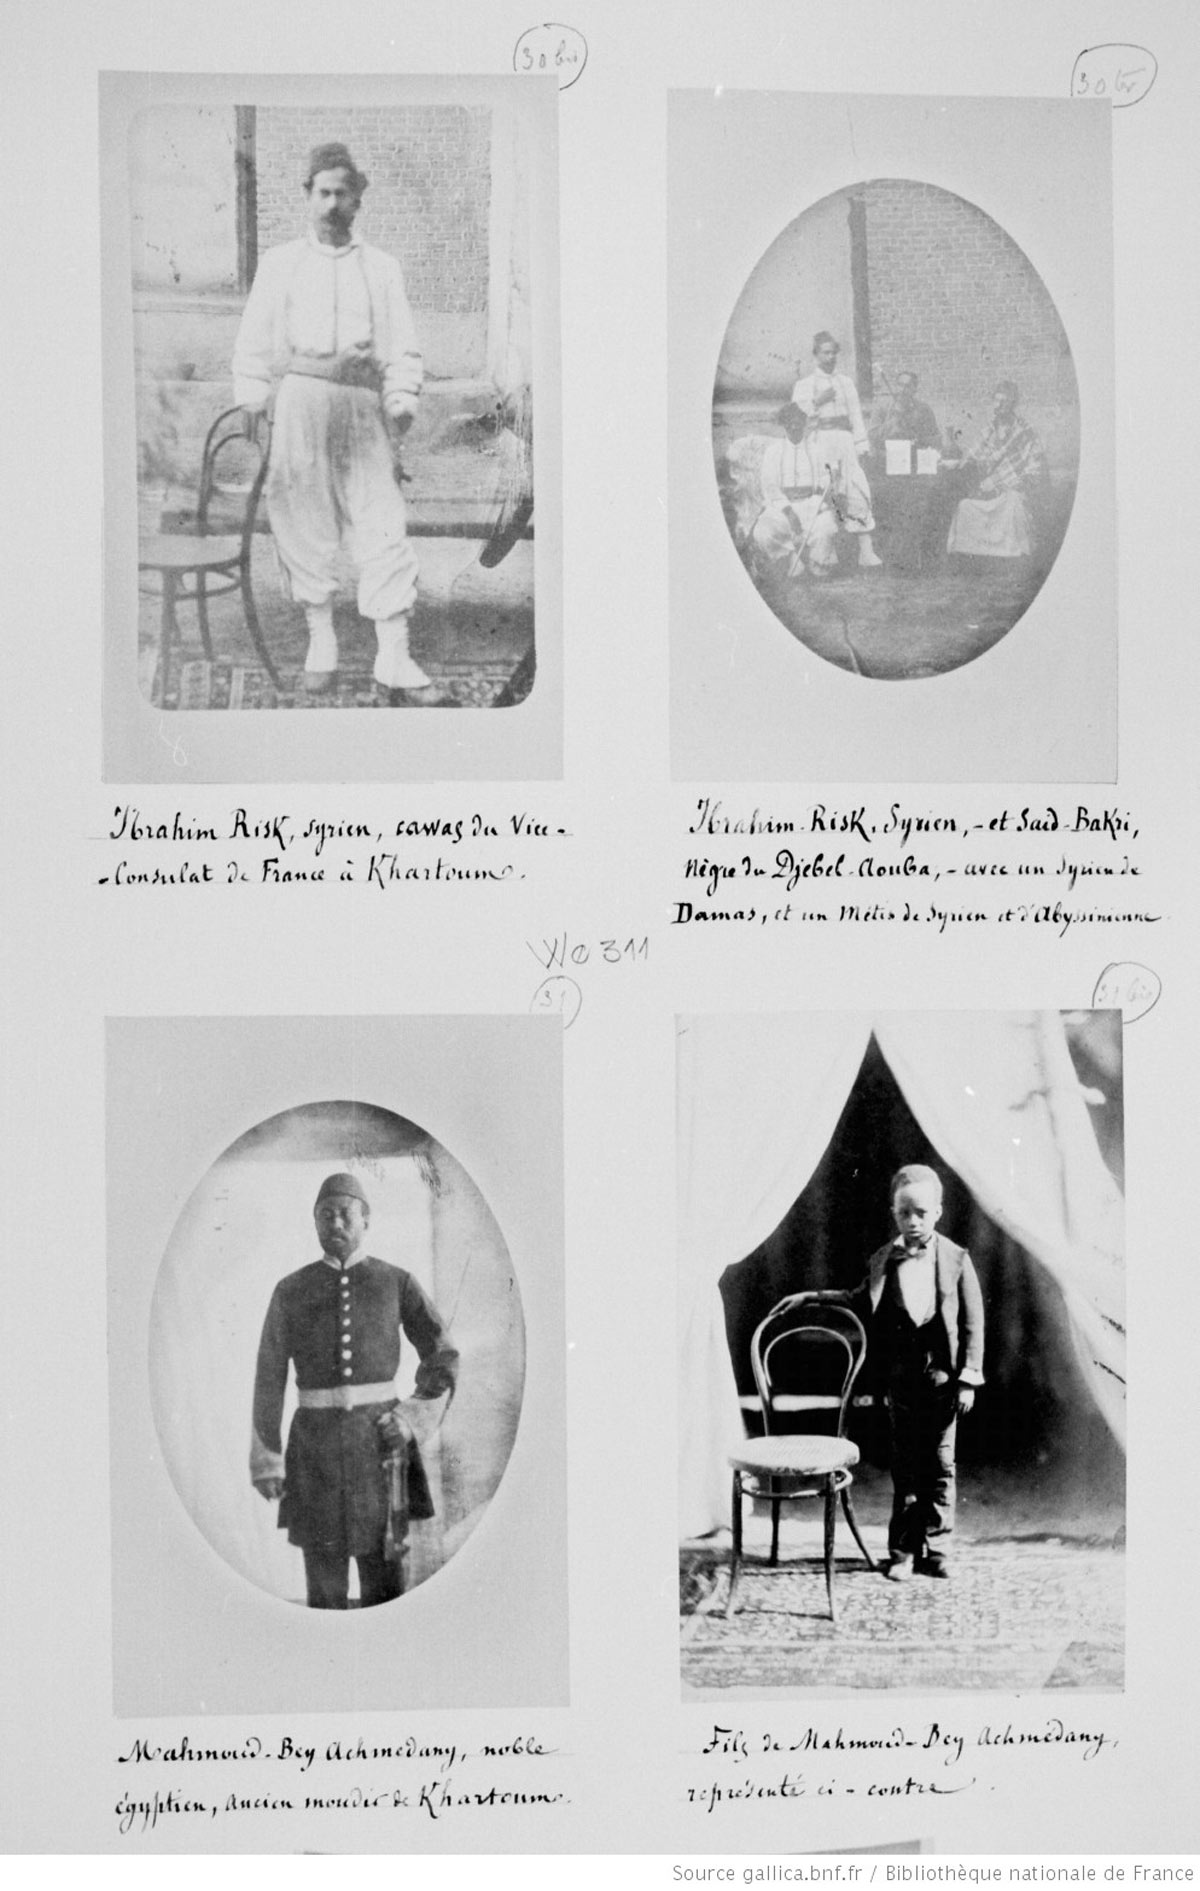 30 bis
30 ter
Ibrahim Risk, syrien, cawas du Vice-
-Consulat de France à Khartoum.
Ibrahim-Risk, Syrien, - et Saïd-Bakri,
Nègre du Djebel-Nouba, - avec un Syrien de
Damas, et un Métis de Syrien et d'Abyssinienne
We 311
31
31 bis
Mahmoud-Bey Achmedany, noble
égyptien, ancien moudir de Khartoum.
Fils de Mahmoud-Bey Achmédany,
représenté ci-contre.
Source gallica.bnf.fr / Bibliothèque nationale de France